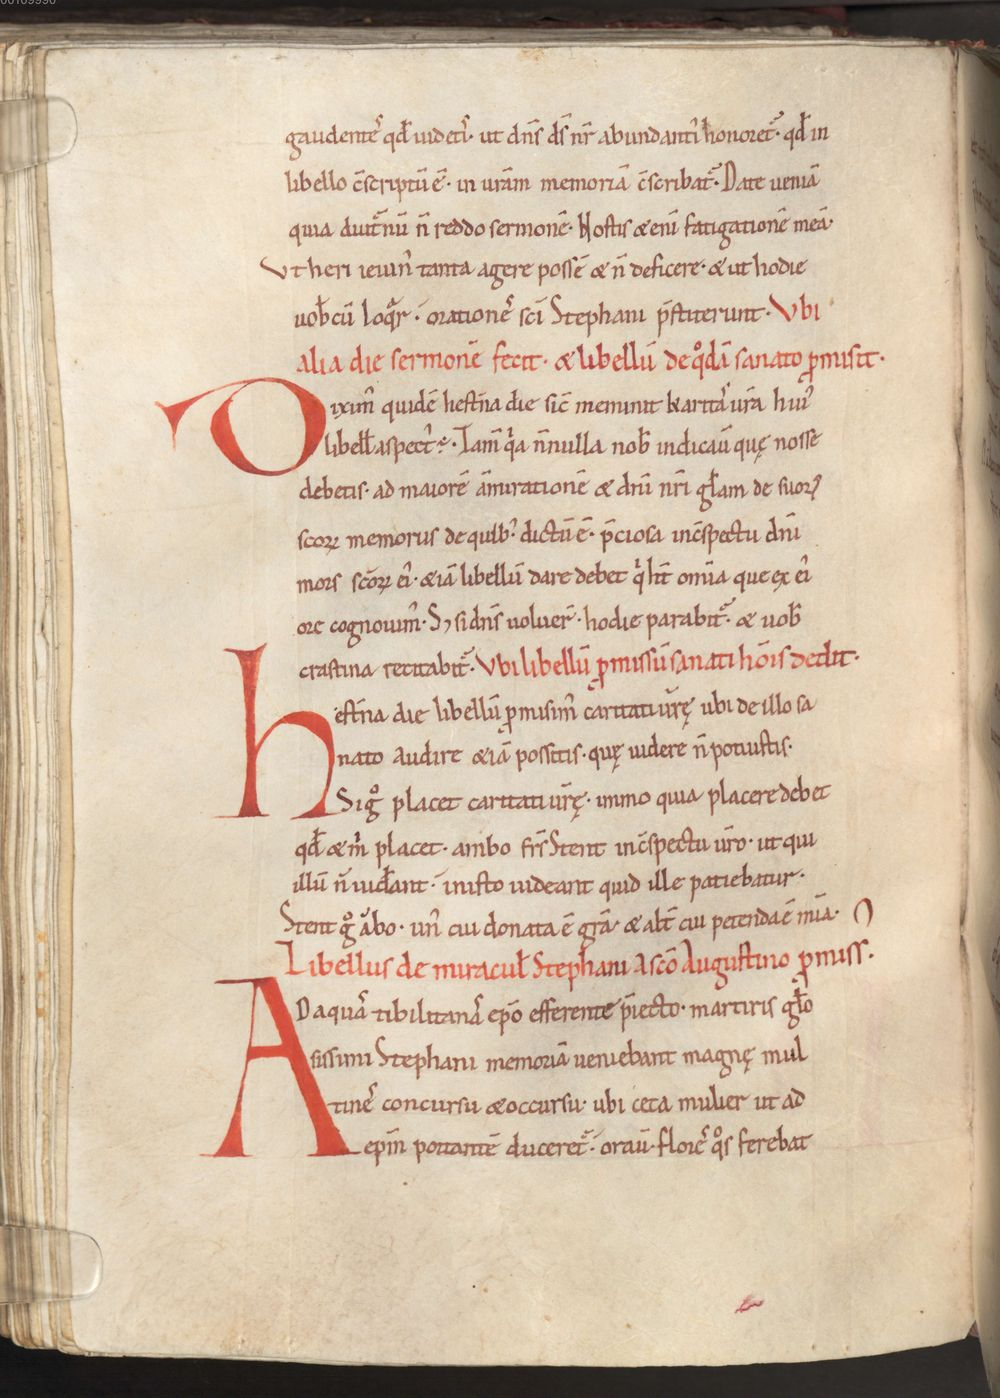 00109990
gaudentẽ qđ uidetĩ· ut dñs ds̃ nr̃ abundantĩ honoret᷒· qđ in
libello c̃scriptũ ẽ· in ur̃am memoriã c̃scribat᷒· Date ueniã
quia diut̃nũ ñ reddo sermonẽ· Nostis & enĩ fatigationẽ meã·
Vt heri ieiuñ tanta agere possẽ & ñ deficere· & ut hodie
uob̃ cũ loq̃r· orationẽ sc̃i Stephani p̃stiterunt· Vbi
alia die sermonẽ fecit· & libellũ de qͦdã sanato ꝓmisit·
Diximꝰ quidẽ hest̃na die sic̃ meminit karitã ur̃a huiꝰ
libell̃ aspect᷒· Iam q̃a ñnulla nob̃ indicaũ quę nosse
debetis· ad maiorẽ ãmirationẽ & dñi nr̃i gl̃am de suoꝝ
sc̃oꝝ memoriis de quibꝰ dictũ ẽ· p̃ciosa inc̃spectu dñi
mors sc̃oꝝ eiꝰ· & iã libellũ dare debet q̃ hñt omĩa que ex eiꝰ
ore cognouimꝰ· Sꝫ si dñs uoluer̃· hodie parabit᷒· & uob̃
crastina recitabit᷒· Vbi libellũ ꝓmissũ sanati hoĩs dedit·
hest̃na die libellũ ꝓmisimꝰ caritati ur̃ę ubi de illo sa
nato audire & iã possetis· quę uidere ñ potuistis·
Si gͦ placet caritati ur̃ę· immo quia placere debet
qđ & m̃ placet· ambo fr̃s stent inc̃spectu ur̃o· ut qui
illũ ñ uid̃ant· inisto uideant quid ille patiebatur·
Stent gͦ ãbo· unꝰ cui donata ẽ gr̃a· & alt̃ cui petenda ẽ mĩa·
Libellus de miracul̃ Stephani A sc̃o Augustino ꝓmiss·
Ad aquã tibilitanã ep̃o efferente p̃iecto· martiris gl̃o
sissimi Stephani memoriã ueniebant magnę mul
tinẽ concursu & occursu· ubi ceca mulier ut ad
ep̃m portantẽ duceret᷒· oraũ· florẽ qͦs ferebat